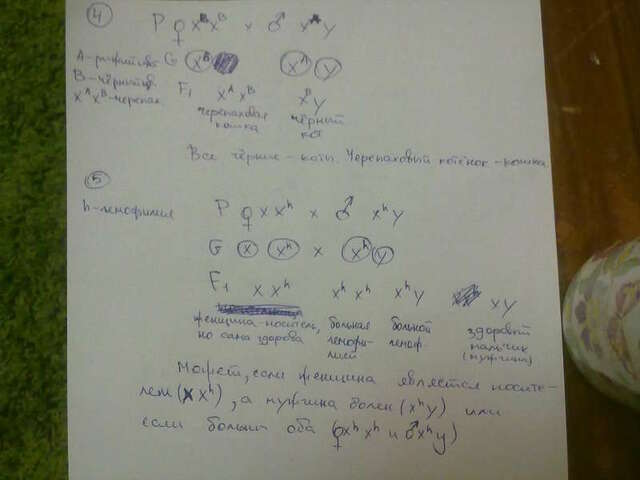 4
P ♀ X^B X^B x ♂ X^A Y
A - рыжий цв. G X^B X^A Y
B - чёрный цв. F1 X^A X^B X^B Y
X^A X^B - черепах. черепаховая чёрный
кошка кот
Все чёрные - коты. Черепаховый котёнок - кошка
5
h - гемофилия P ♀ X X^h x ♂ X^h Y
G X X^h x X^h Y
F1 X X^h X^h X^h X^h Y XY
женщина-носитель, больная больной здоровый
но сама здорова гемофи- гемоф. мальчик
лией (мужчина)
Может, если женщина является носите-
лем (X X^h), а мужчина болен (X^h Y) или
если больны оба (♀X^h X^h и ♂X^h Y)